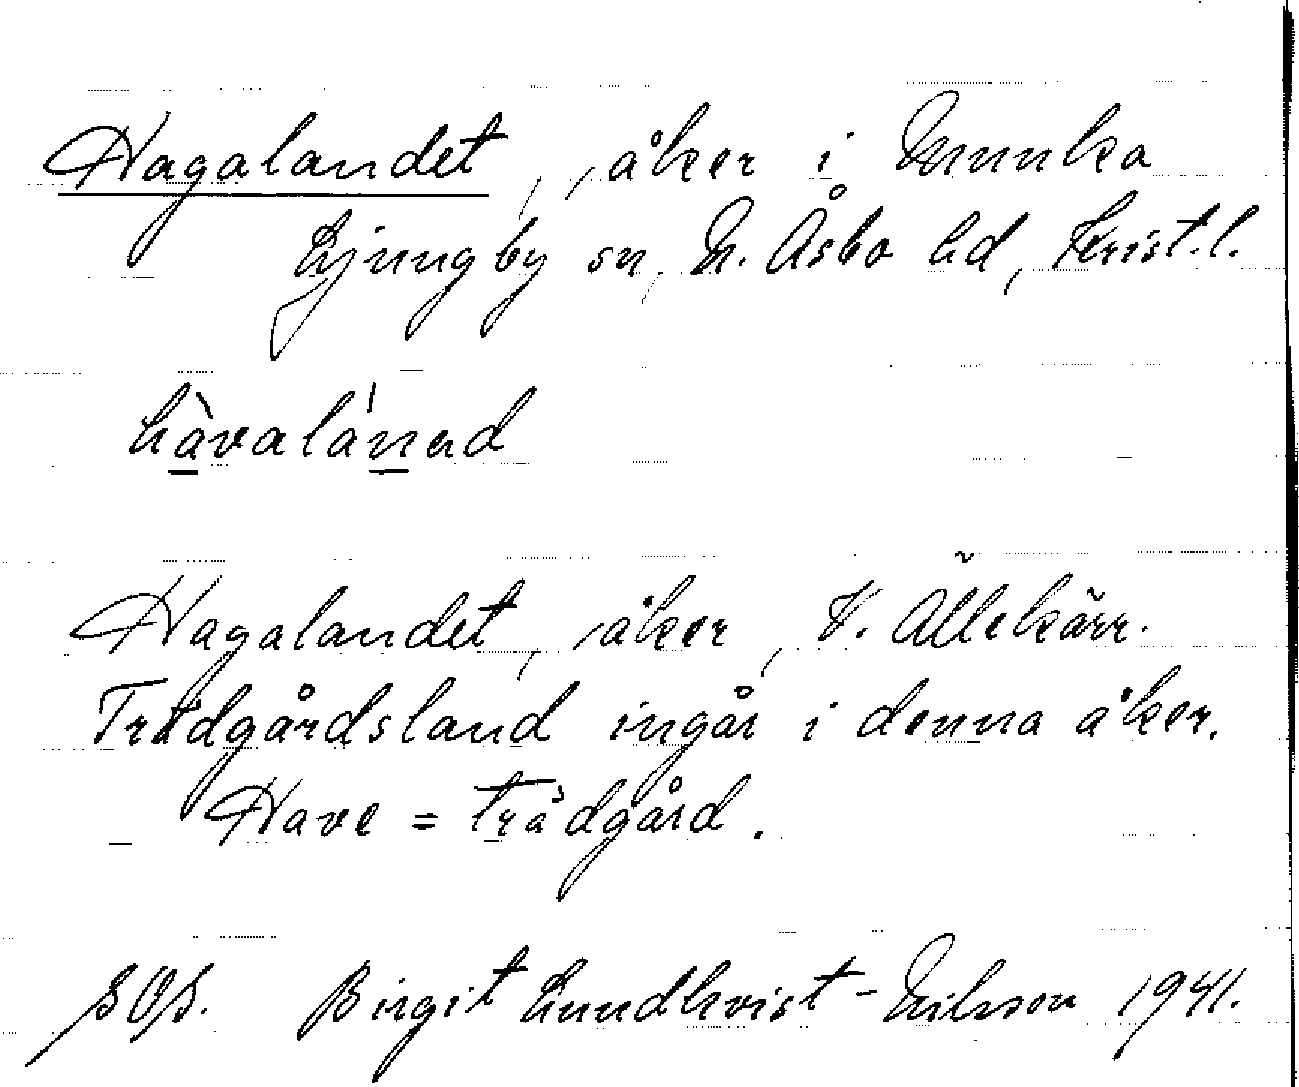 Hagalandet, åker i Munka
Ljungby sn, N. Åsbo hd, Krist. l.
hàvalán̲ed
Hagalandet, åker, V. Ällekärr.
Trädgårdsland ingår i denna åker.
Have = trädgård.
Birgit Lundkvist-Nilsson 1941.